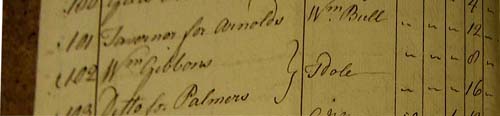 101 Tavernor for Arnolds Wm. Bull " " " 12
102 Wm Gibbons } T Dole " " " 8
103 Ditto for Palmers " " " 16